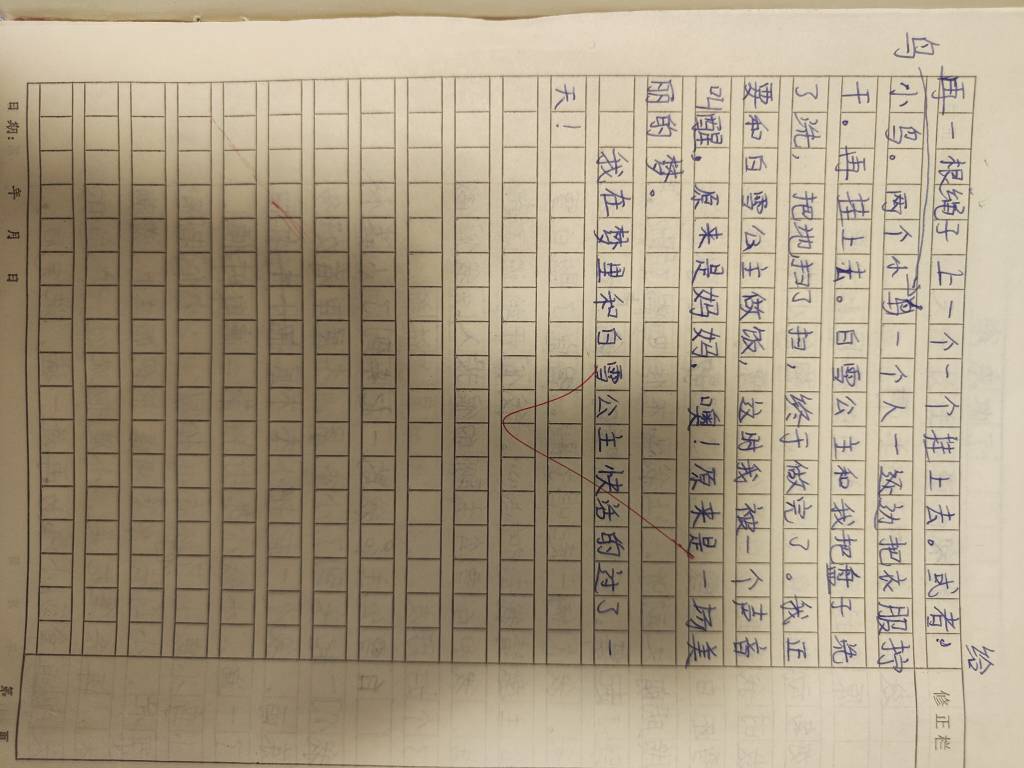 给
鸟
再一根绳子上一个一个挂上去。或者
小鸟。两个小一个人一边把衣服拧
干。再挂上去。白雪公主和我把盘子洗
了洗，把地扫了扫，终于做完了。我正
要和白雪公主做饭，这时我被一个声音
叫醒。原来是妈妈，噢！原来是一场美
丽的梦。
我在梦里和白雪公主快活的过了一
天！
修正栏
日期： 年 月 日
第 页